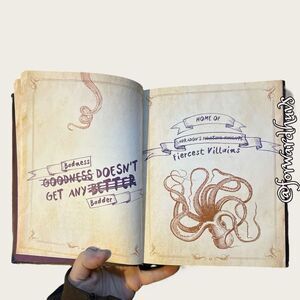 Badness
GOODNESS DOESN'T
GET ANY BETTER
Badder
HOME OF
Fiercest Villains